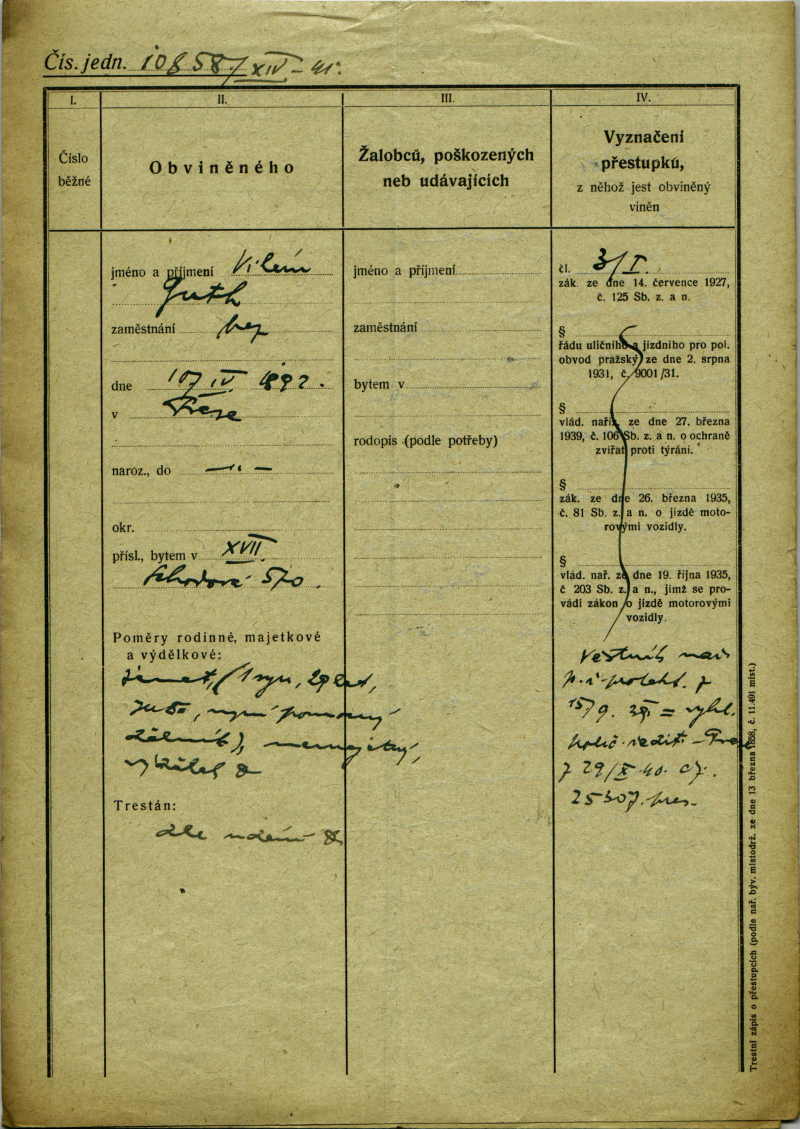 Čís. jedn. 10858/XIV-41.
I.
Číslo
běžné
II.
Obviněného
III.
Žalobců, poškozených
neb udávajících
IV.
Vyznačení
přestupků,
z něhož jest obviněný
viněn
jméno a příjmení Vilém
Guth
zaměstnání bez
dne IV. 1892.
v Praze
naroz., do
okr.
přísl., bytem v XVII
570.
Poměry rodinné, majetkové
a výdělkové:
ženat, (1 syn, 29 let,
nemajetný,
Trestán:
dle udání
jméno a příjmení
zaměstnání
bytem v
rodopis (podle potřeby)
čl. 3/I.
zák. ze dne 14. července 1927,
č. 125 Sb. z. a n.
§
řádu uličního a jízdního pro pol.
obvod pražský ze dne 2. srpna
1931, č. 9001/31.
§
vlád. nař. ze dne 27. března
1939, č. 106 Sb. z. a n. o ochraně
zvířat proti týrání.
§
zák. ze dne 26. března 1935,
č. 81 Sb. z. a n. o jízdě moto-
rovými vozidly.
§
vlád. nař. ze dne 19. října 1935,
č 203 Sb. z. a n., jímž se pro-
vádí zákon o jízdě motorovými
vozidly.
Věstník nař.
protekt. z
15/9. = vyhl.
polic. ředit. Praze
z 29/X 40. čj.
25307 pres.
Trestní zápis o přestupcích (podle nař. býv. místodrž. ze dne 13 března 1888, č. 11.491 míst.)